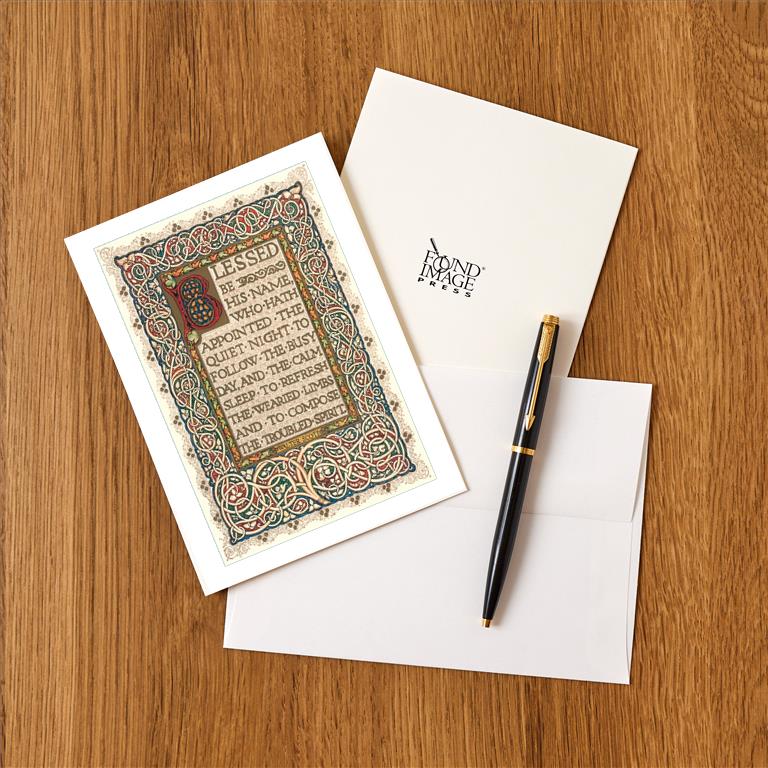 BLESSED
BE
HIS·NAME
WHO·HATH
APPOINTED·THE
QUIET·NIGHT·TO
FOLLOW·THE·BUSY
DAY, AND·THE·CALM
SLEEP·TO·REFRESH
THE·WEARIED·LIMBS
AND·TO·COMPOSE
THE·TROUBLED·SPIRIT.
WALTER SCOTT
FOUND
IMAGE
PRESS